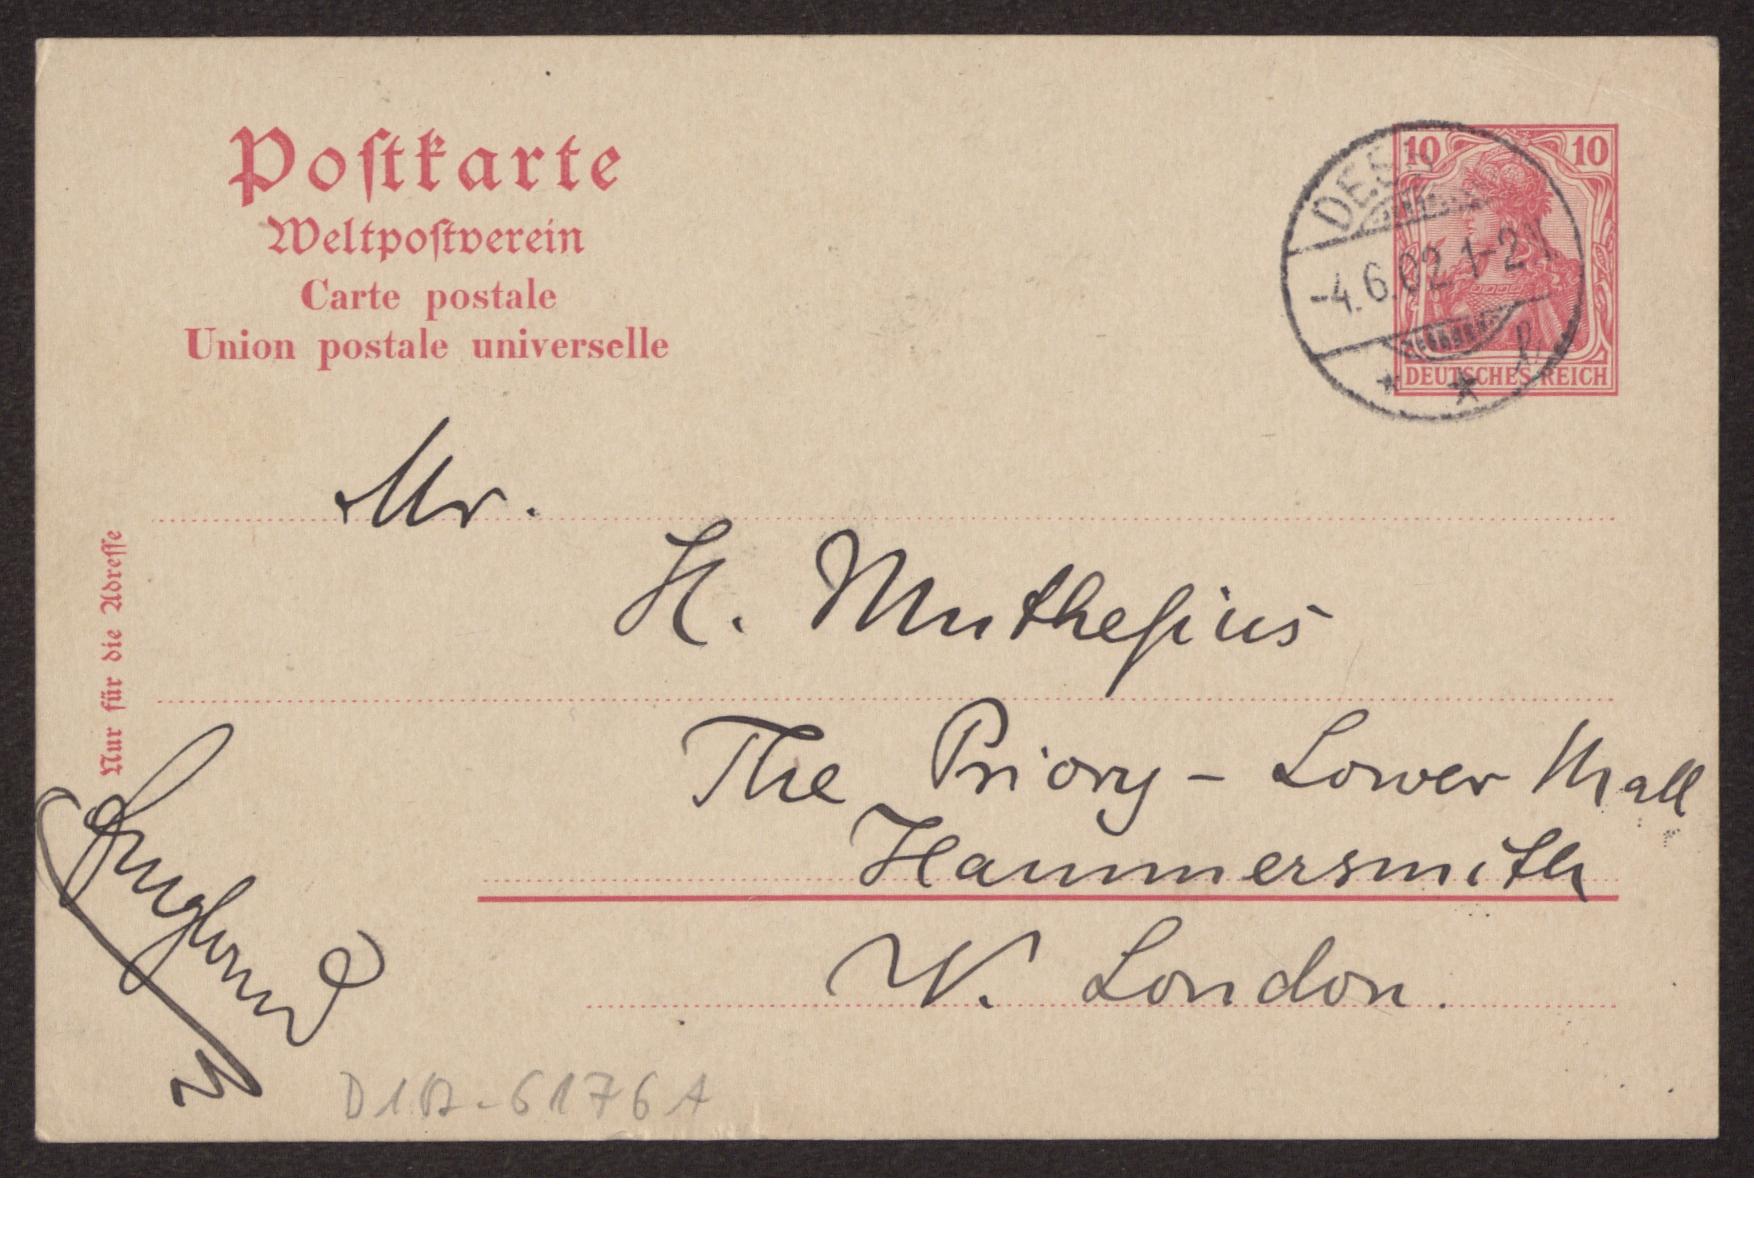 Poſtkarte
Weltpoſtverein
Carte postale
Union postale universelle
10 10
DEUTSCHES REICH
-4.6.02 1-2N
Nur für die Adreſſe
Mr.
H. Mutheſius
The Priory - Lower Mall
Hammersmith
W. London.
England